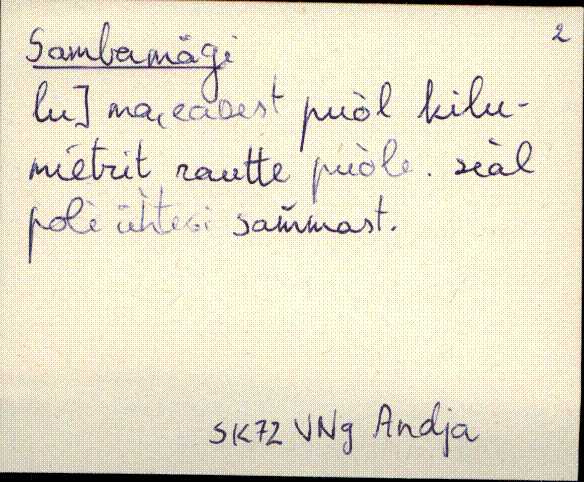 2
Sambamägi
lu] ma, eaᴅest puòl kilu-
mìetrit rautte pùole. seàl
polè ühtegi sam̆mast.
SK72 VNg Andja